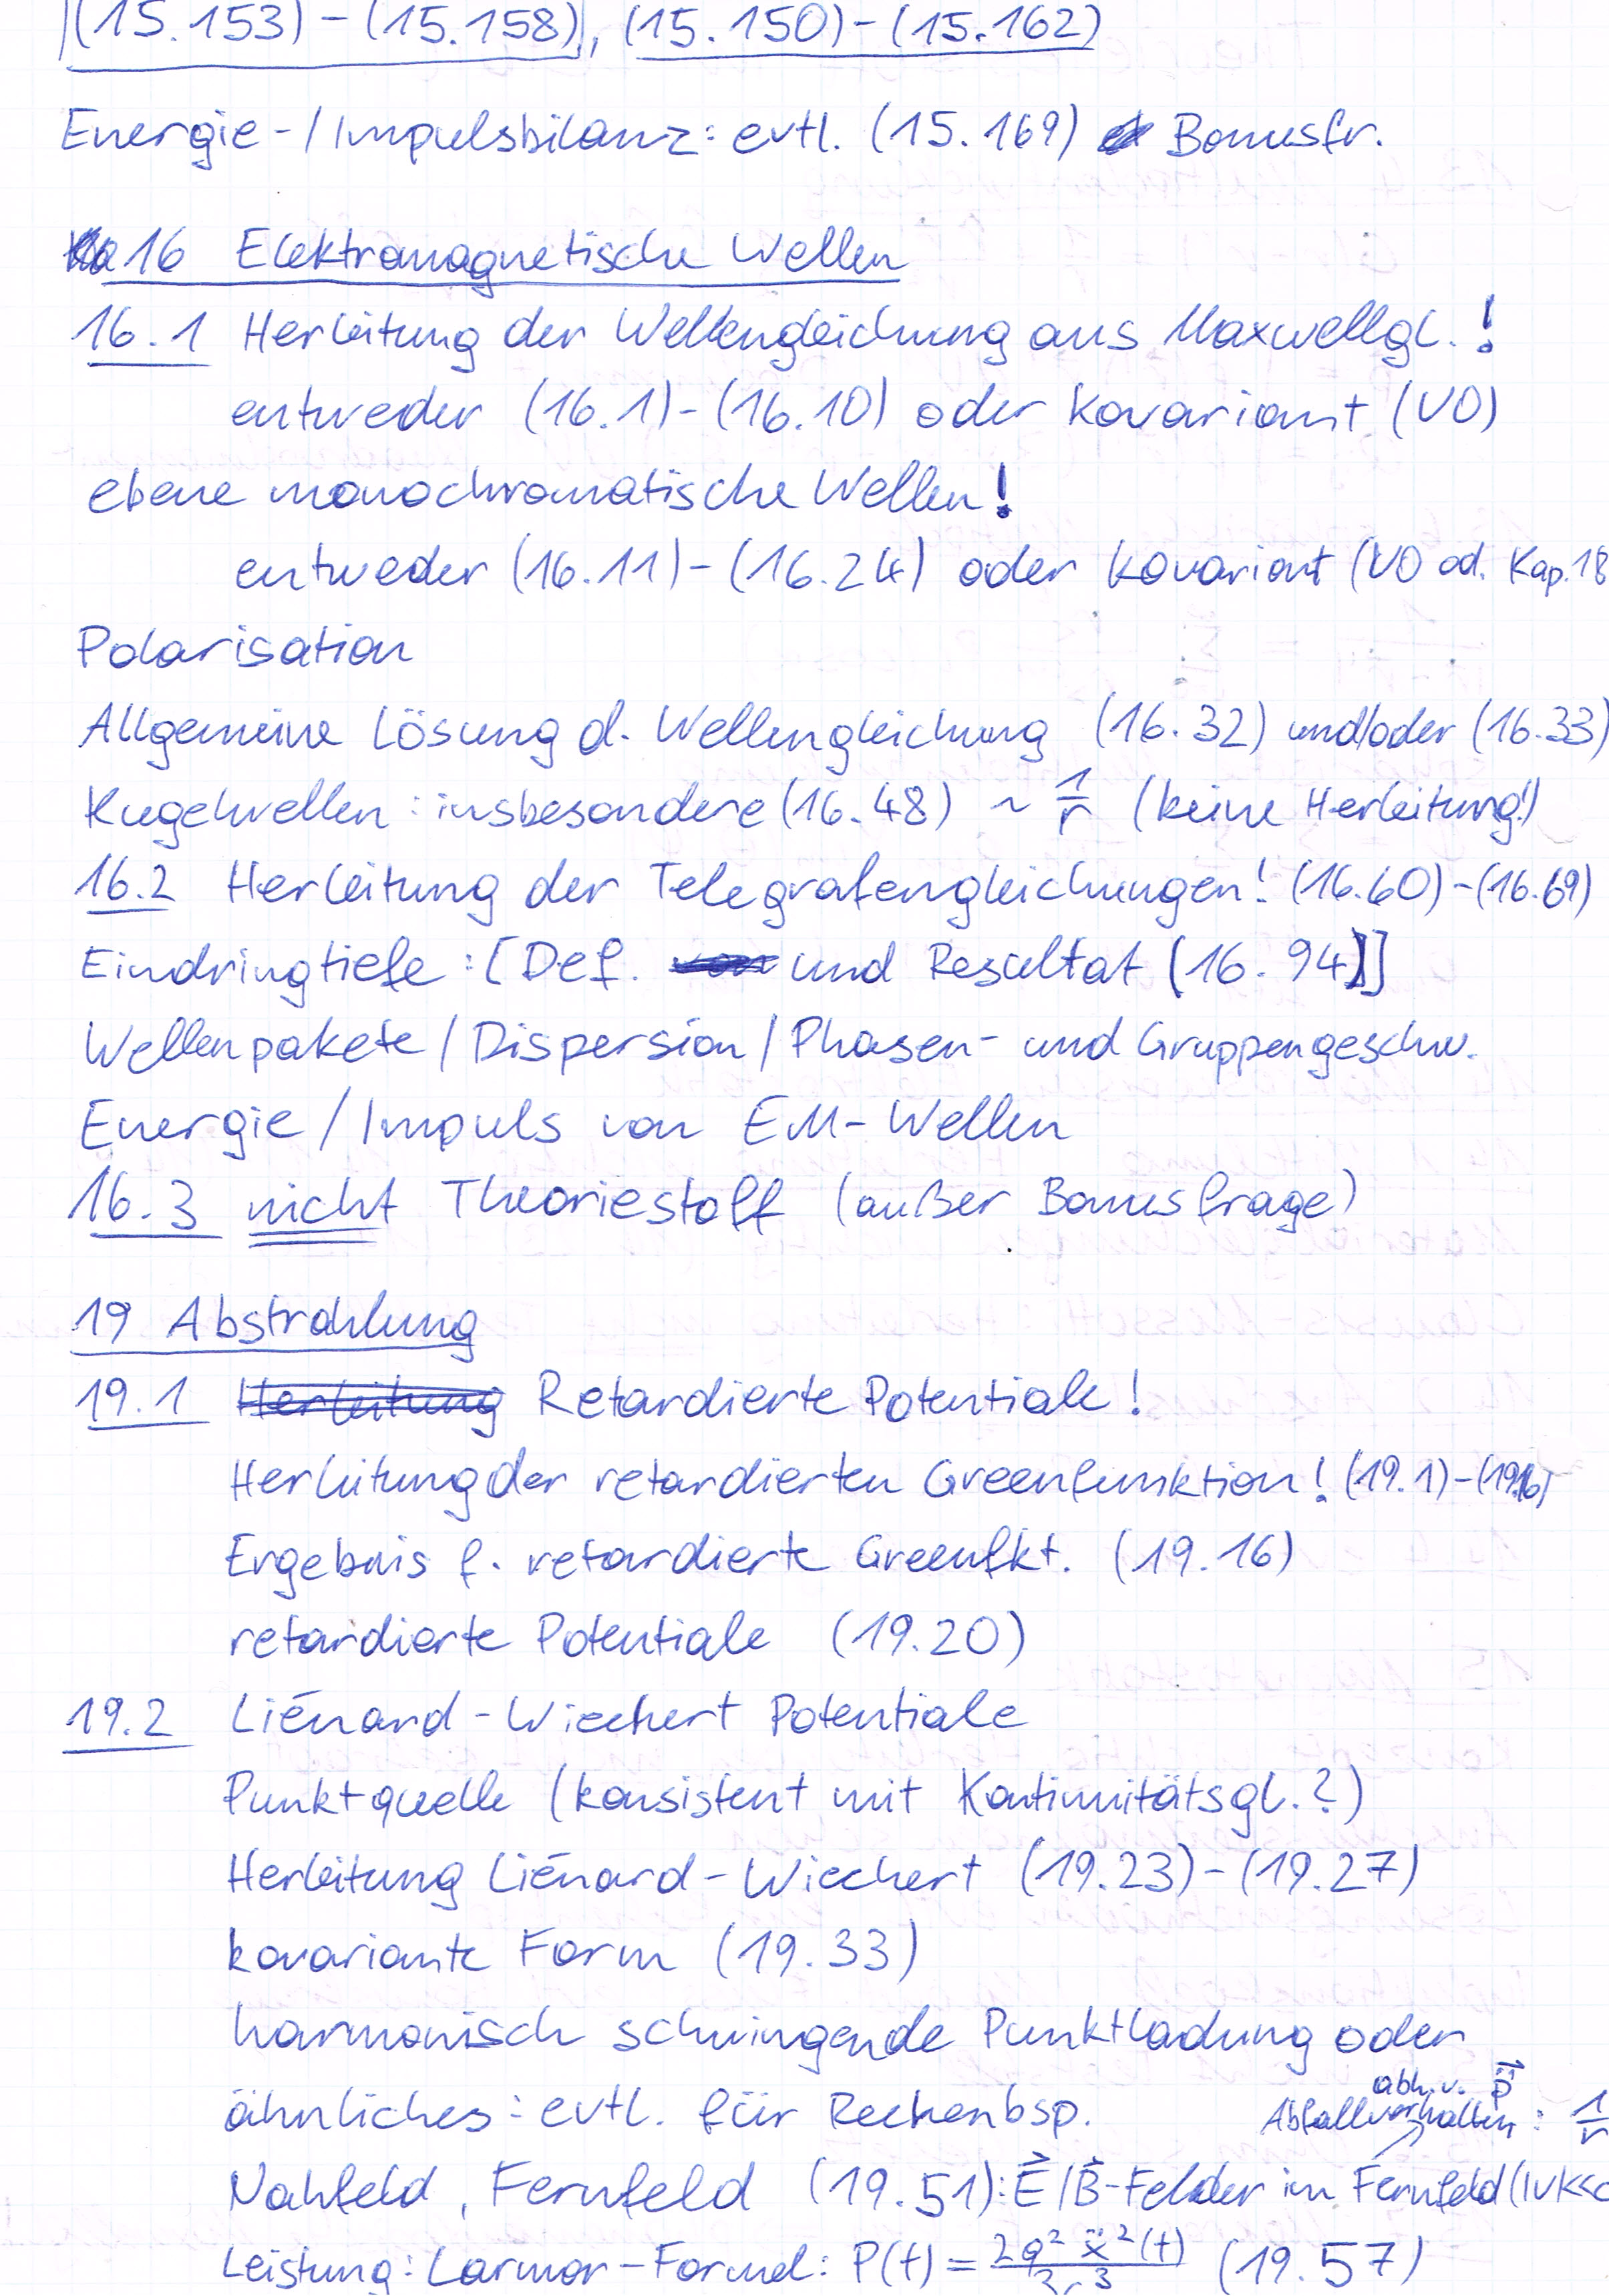 (15.153) - (15.158), (15.150) - (15.162)
Energie-/Impulsbilanz: evtl. (15.169) Bonusfr.
16 Elektromagnetische Wellen
16.1 Herleitung der Wellengleichung aus Maxwellgl.!
entweder (16.1)-(16.10) oder kovariant (VO)
ebene monochromatische Wellen!
entweder (16.11)-(16.24) oder kovariant (VO od. Kap.18
Polarisation
Allgemeine Lösung d. Wellengleichung (16.32) und/oder (16.33)
Kugelwellen: insbesondere (16.48) ~ 1/r (keine Herleitung!)
16.2 Herleitung der Telegrafengleichungen! (16.60)-(16.69)
Eindringtiefe: [Def. und Resultat (16.94)]
Wellenpakete / Dispersion / Phasen- und Gruppengeschw.
Energie / Impuls von EM-Wellen
16.3 nicht Theoriestoff (außer Bonusfrage)
19 Abstrahlung
19.1 Herleitung Retardierte Potentiale!
Herleitung der retardierten Greenfunktion! (19.1)-(19.16)
Ergebnis f. retardierte Greenfkt. (19.16)
retardierte Potentiale (19.20)
19.2 Liénard-Wiechert Potentiale
Punktquelle (konsistent mit Kontinuitätsgl.?)
Herleitung Liénard-Wiechert (19.23)-(19.27)
kovariante Form (19.33)
harmonisch schwingende Punktladung oder
ähnliches: evtl. für Rechenbsp.
abh. v. p̈⃗
Abfallverhalten: 1/r
Nahfeld, Fernfeld (19.51): E⃗/B⃗-Felder im Fernfeld (|v|<<c
Leistung: Larmor-Formel: P(t) = 2q² ẍ²(t) / 3c³ (19.57)